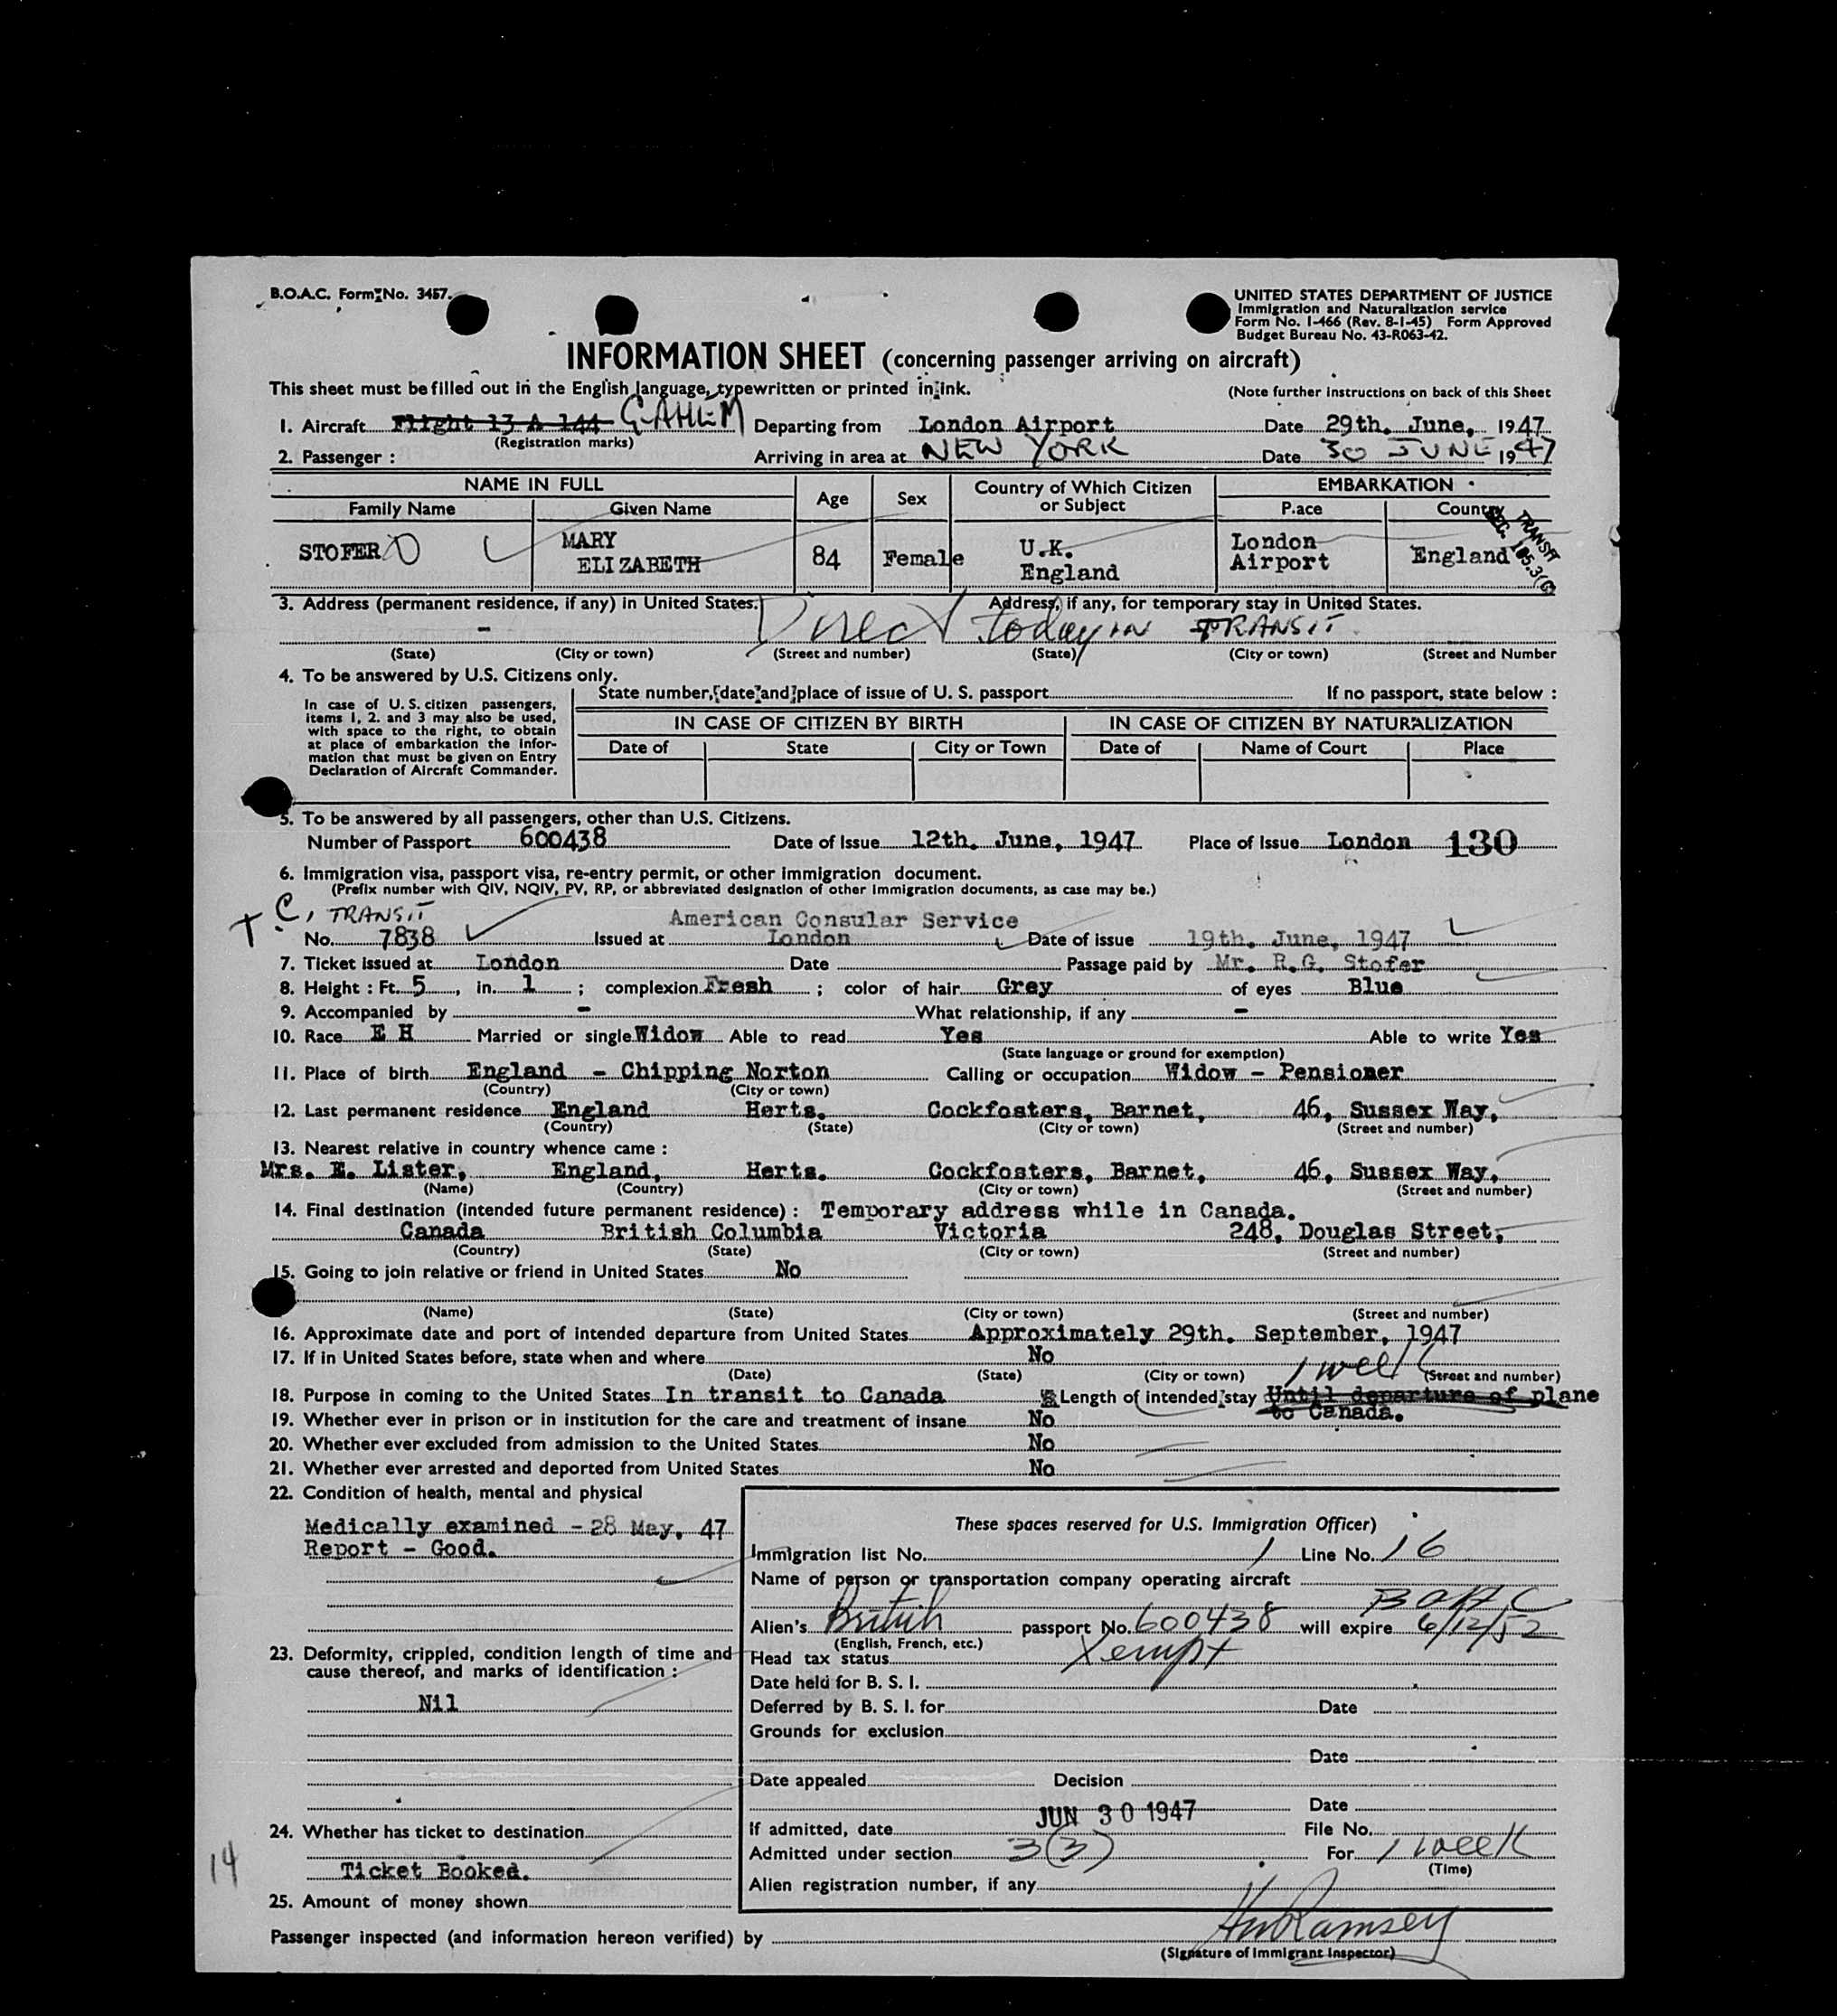 B.O.A.C. Form No. 3457.
UNITED STATES DEPARTMENT OF JUSTICE
Immigration and Naturalization service
Form No. I-466 (Rev. 8-1-45) Form Approved
Budget Bureau No. 43-R063-42.
INFORMATION SHEET (concerning passenger arriving on aircraft)
This sheet must be filled out in the English language, typewritten or printed in ink.
(Note further instructions on back of this Sheet
1. Aircraft Flight 13 A 144 G-AHEM Departing from London Airport Date 29th. June, 1947
(Registration marks)
2. Passenger : Arriving in area at NEW YORK Date 30 JUNE 1947
NAME IN FULL Age Sex Country of Which Citizen or Subject EMBARKATION
Family Name Given Name P.ace Country
STOFER MARY ELIZABETH 84 Female U.K. England London Airport England
TRANSIT
3. Address (permanent residence, if any) in United States. Address, if any, for temporary stay in United States.
- Direct today IN TRANSIT
(State) (City or town) (Street and number) (State) (City or town) (Street and Number
4. To be answered by U.S. Citizens only.
In case of U.S. citizen passengers, items 1, 2. and 3 may also be used, with space to the right, to obtain at place of embarkation the information that must be given on Entry Declaration of Aircraft Commander.
State number, date and place of issue of U. S. passport If no passport, state below :
IN CASE OF CITIZEN BY BIRTH IN CASE OF CITIZEN BY NATURALIZATION
Date of State City or Town Date of Name of Court Place
5. To be answered by all passengers, other than U.S. Citizens.
Number of Passport 600438 Date of Issue 12th. June, 1947 Place of Issue London 130
6. Immigration visa, passport visa, re-entry permit, or other immigration document.
(Prefix number with QIV, NQIV, PV, RP, or abbreviated designation of other immigration documents, as case may be.)
C, TRANSIT
American Consular Service
No. 7838 Issued at London Date of issue 19th. June, 1947
7. Ticket issued at London Date Passage paid by Mr. R.G. Stofer
8. Height : Ft. 5, in. 1 ; complexion Fresh ; color of hair Grey of eyes Blue
9. Accompanied by - What relationship, if any -
10. Race E H Married or single Widow Able to read Yes Able to write Yes
(State language or ground for exemption)
11. Place of birth England - Chipping Norton Calling or occupation Widow - Pensioner
(Country) (City or town)
12. Last permanent residence England Herts. Cockfosters, Barnet, 46, Sussex Way,
(Country) (State) (City or town) (Street and number)
13. Nearest relative in country whence came :
Mrs. E. Lister, England, Herts. Cockfosters, Barnet, 46, Sussex Way,
(Name) (Country) (City or town) (Street and number)
14. Final destination (intended future permanent residence) : Temporary address while in Canada.
Canada British Columbia Victoria 248, Douglas Street,
(Country) (State) (City or town) (Street and number)
15. Going to join relative or friend in United States No
(Name) (State) (City or town) (Street and number)
16. Approximate date and port of intended departure from United States Approximately 29th. September, 1947
17. If in United States before, state when and where No
(Date) (State) (City or town) (Street and number)
1 week
18. Purpose in coming to the United States In transit to Canada Length of intended stay Until departure of plane
to Canada.
19. Whether ever in prison or in institution for the care and treatment of insane No
20. Whether ever excluded from admission to the United States No
21. Whether ever arrested and deported from United States No
22. Condition of health, mental and physical
Medically examined - 28 May. 47
Report - Good.
23. Deformity, crippled, condition length of time and
cause thereof, and marks of identification :
Nil
24. Whether has ticket to destination
14
Ticket Booked.
25. Amount of money shown
These spaces reserved for U.S. Immigration Officer)
Immigration list No. 1 Line No. 16
Name of person or transportation company operating aircraft
BOAC
Alien's British passport No. 600438 will expire 6/12/52
(English, French, etc.)
Head tax status Xempt
Date held for B. S. I.
Deferred by B. S. I. for Date
Grounds for exclusion
Date
Date appealed Decision
Date
If admitted, date JUN 30 1947 File No.
Admitted under section 3(3) For 1 week
(Time)
Alien registration number, if any
Passenger inspected (and information hereon verified) by Ramsey
(Signature of Immigrant Inspector)